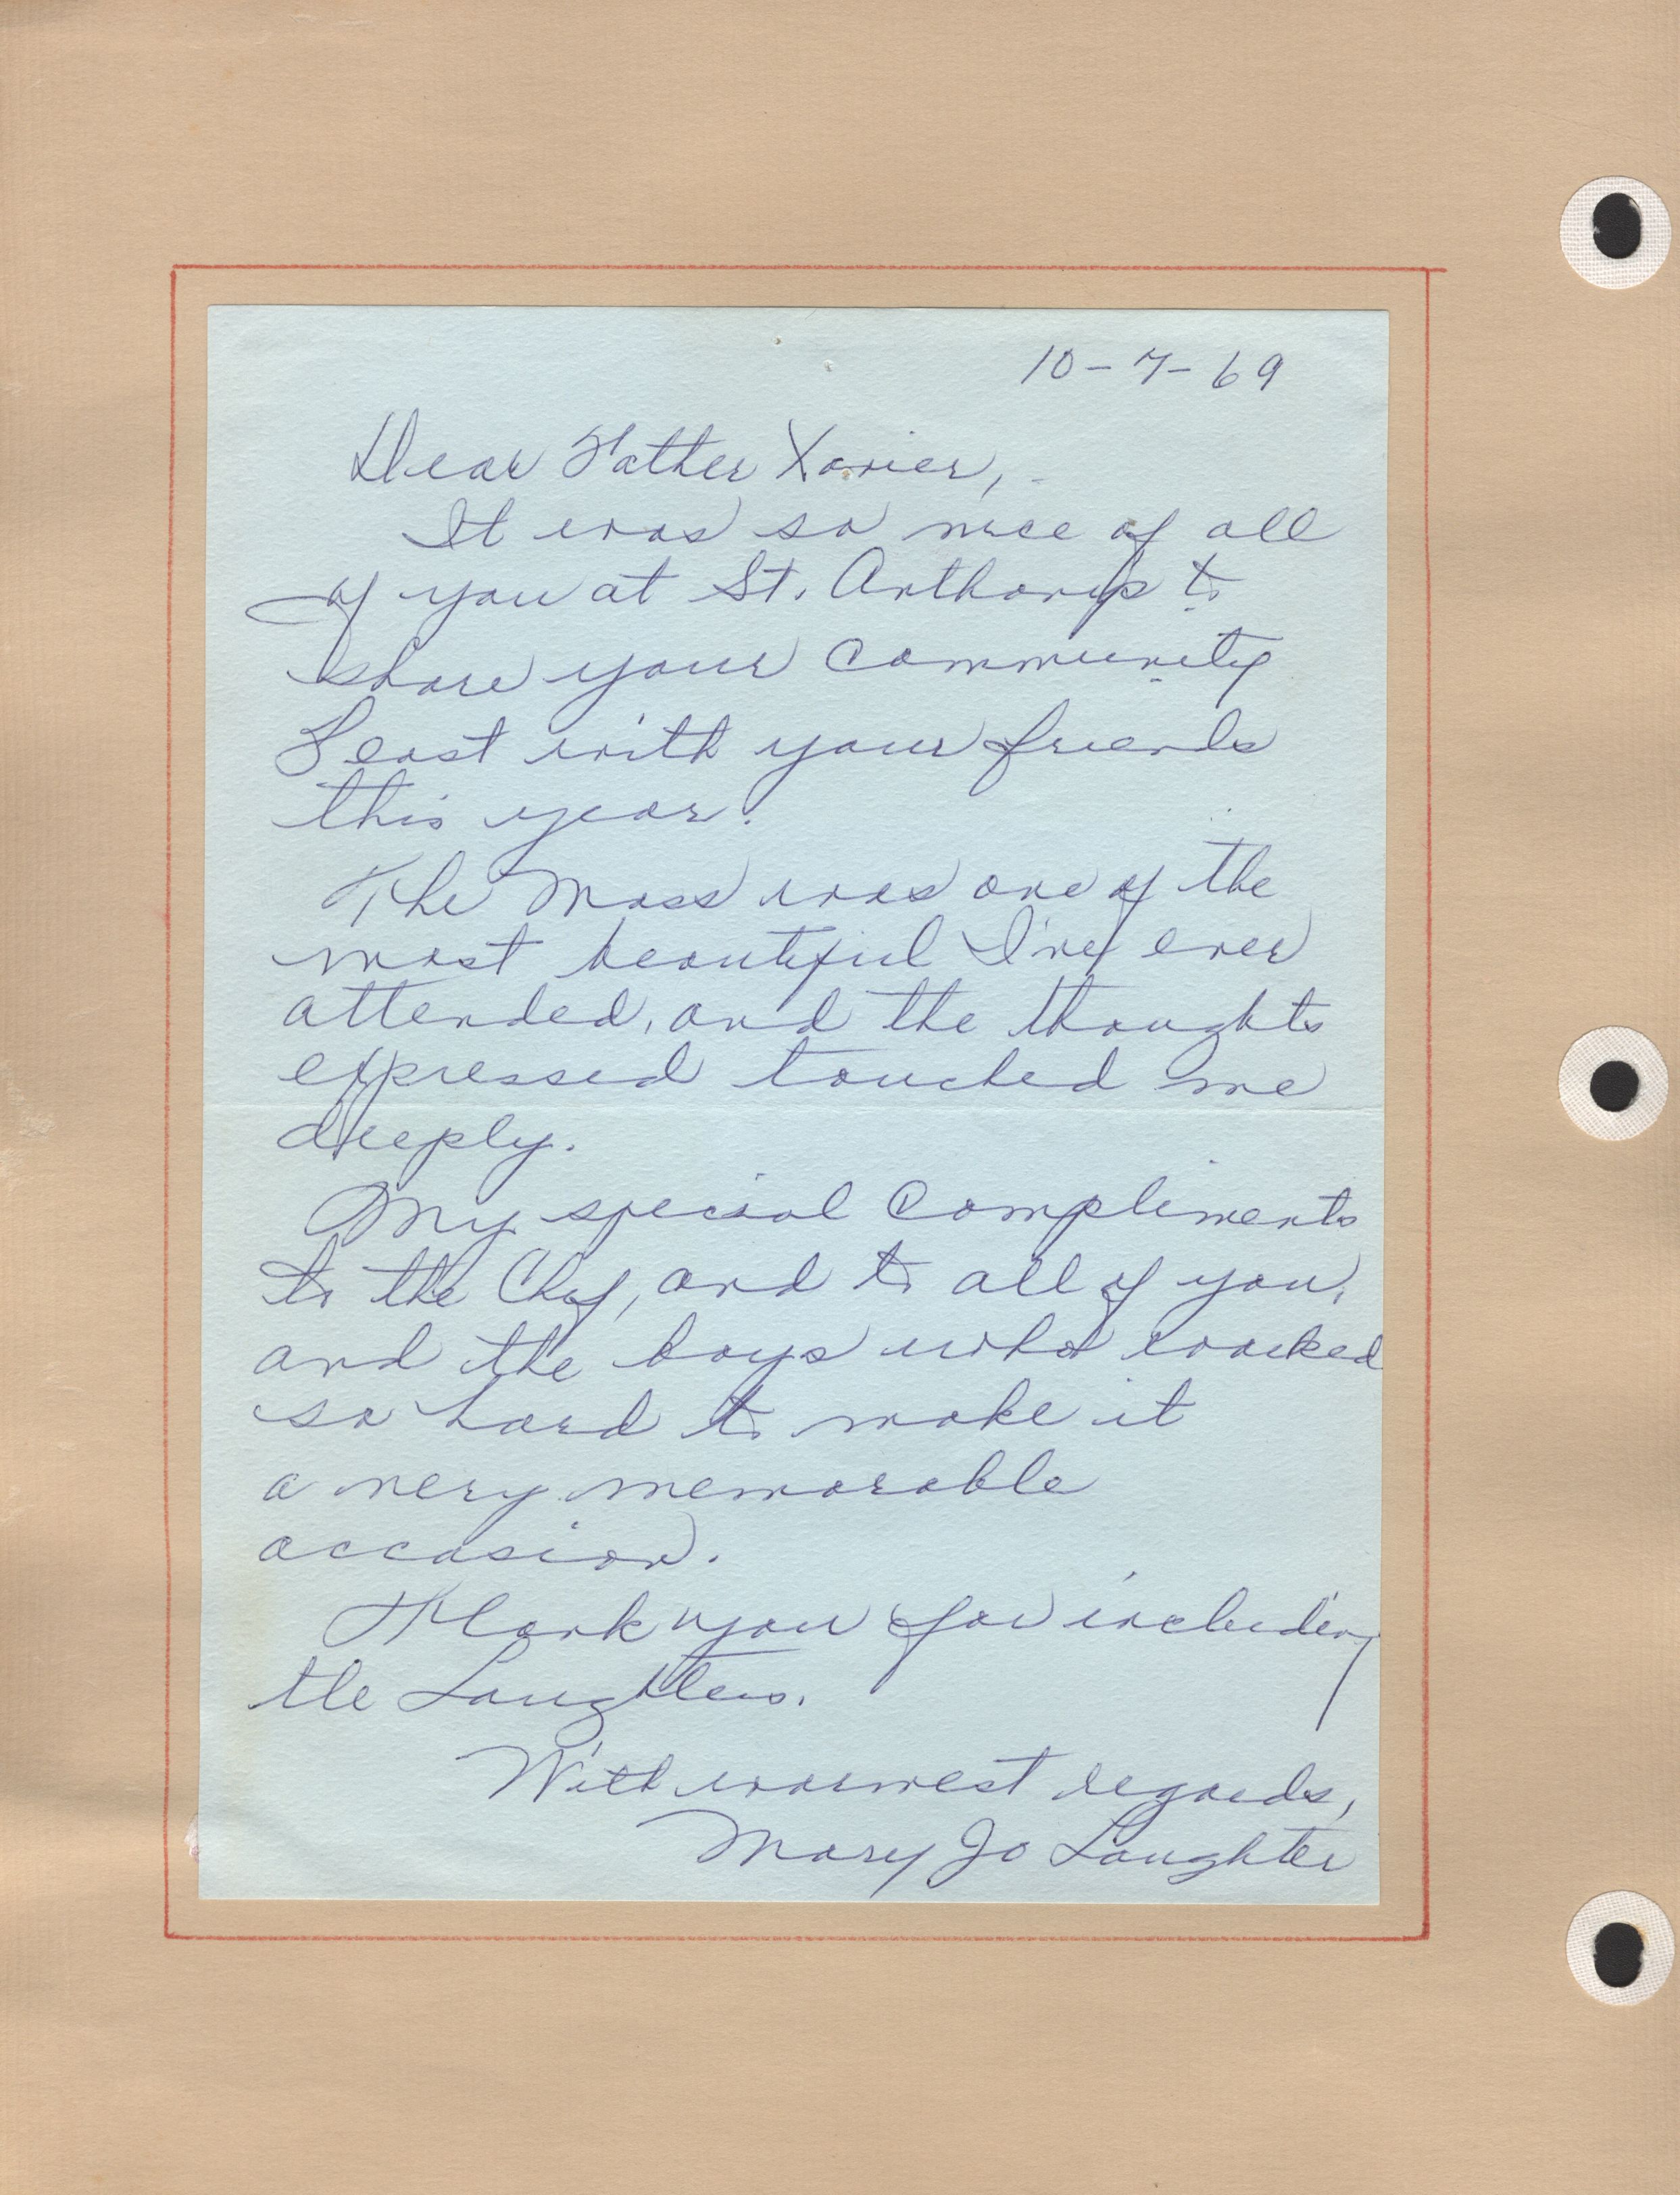 10-7-69
Dear Father Xavier,
It was so nice of all
of you at St. Anthony's to
share your Community
Feast with your friends
this year.
The Mass was one of the
most beautiful I've ever
attended, and the thoughts
expressed touched me
deeply.
My special Compliments
to the Chef, and to all of you,
and the boys who worked
so hard to make it
a very memorable
occasion.
Thank you for including
the Laughters.
With warmest regards,
Mary Jo Laughter